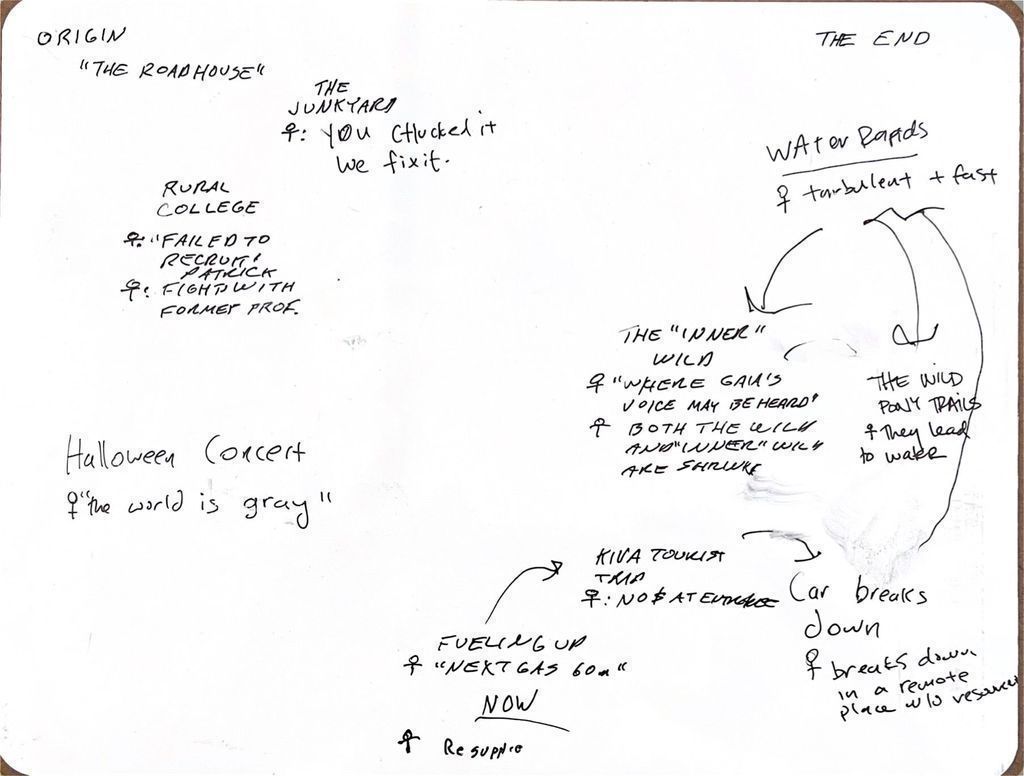 ORIGIN
"THE ROADHOUSE"
THE
JUNKYARD
: YOU CHUCKED it
We fix it.
RURAL
COLLEGE
: "FAILED TO
RECRUIT"
PATRICK
: FIGHT WITH
FORMER PROF.
Halloween Concert
"the world is gray"
THE END
WAter Rapids
turbulent + fast
THE "INNER"
WILD
"WHERE GAIA'S
VOICE MAY BE HEARD"
BOTH THE WILD
AND "INNER" WILD
ARE
THE WILD
PONY TRAILS
They lead
to water
KIVA TOURIST
TRAP
: NO $ AT
Car breaks
down
breaks down
in a remote
place w/o resources
FUELING UP
"NEXT GAS 60m"
NOW
Resupply